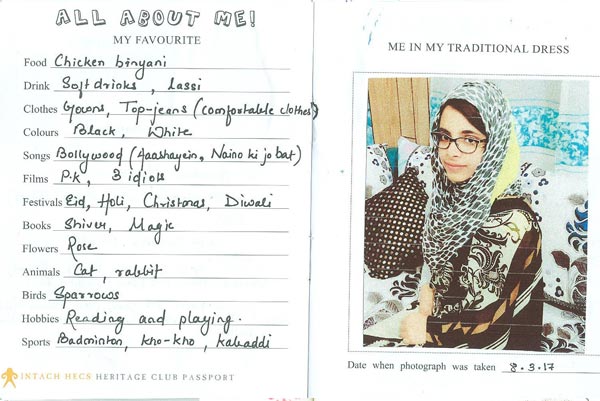 ALL ABOUT ME!
MY FAVOURITE
Food Chicken biryani
Drink Soft drinks, lassi
Clothes Gowns, Top-jeans (comfortable clothes)
Colours Black, White
Songs Bollywood (Aashayein, Naino ki jo bat)
Films P.k, 3 idiots
Festivals Eid, Holi, Christmas, Diwali
Books Shiver, Magic
Flowers Rose
Animals Cat, rabbit
Birds Sparrows
Hobbies Reading and playing.
Sports Badminton, kho-kho, kabaddi
INTACH HECS HERITAGE CLUB PASSPORT
ME IN MY TRADITIONAL DRESS
Date when photograph was taken 8.3.17